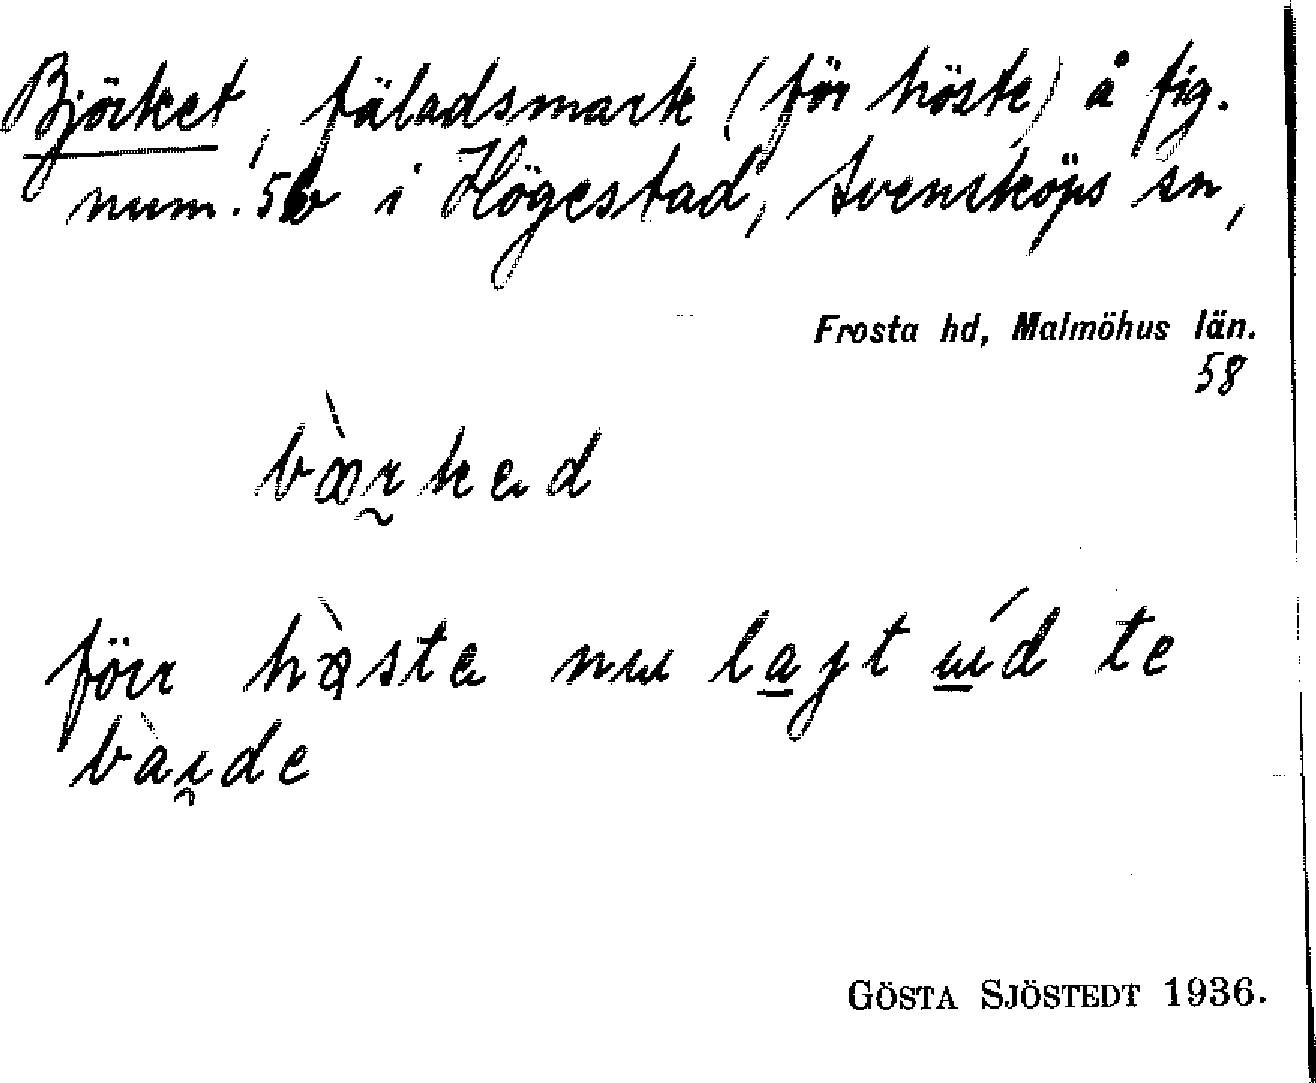 Björket, fäladsmark (för höste) å fig.
num. 5b i Högestad, Svensköps sn,
Frosta hd, Malmöhus län.
58
bærked
förr hæste nu lagt ud te
barde
GÖSTA SJÖSTEDT 1936.